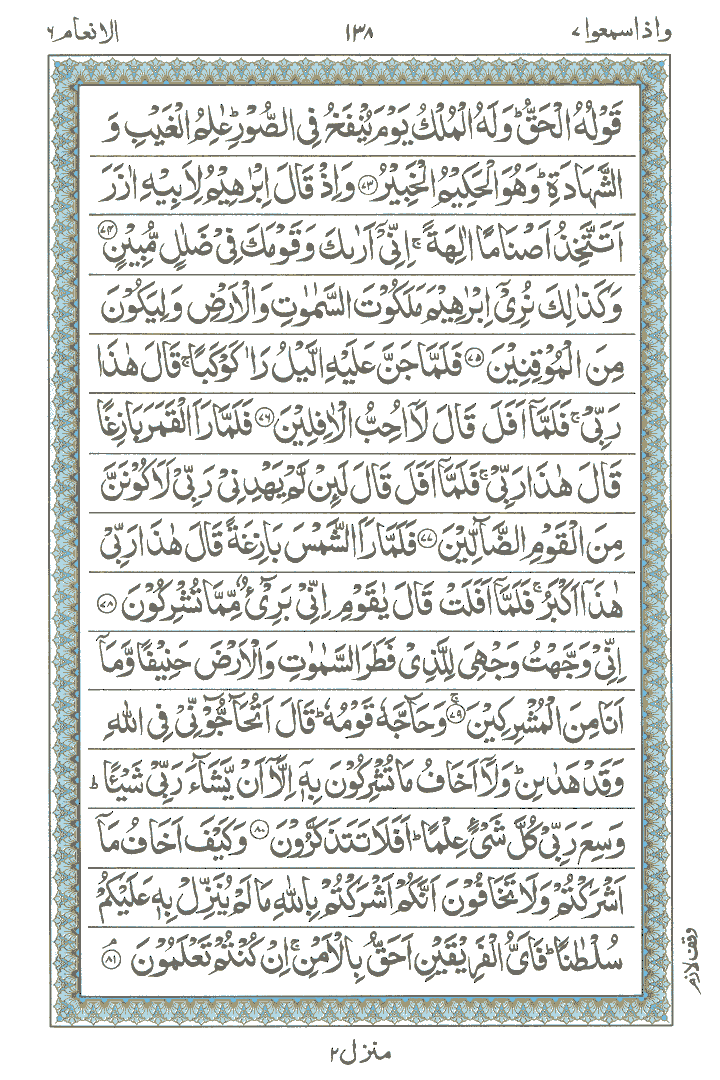 واذاسمعوا۷ ۱۳۸ الانعام۶
قَوۡلُهُ الۡحَقُّ ؕ وَلَهُ الۡمُلۡكُ يَوۡمَ يُنۡفَخُ فِى الصُّوۡرِ ؕ عٰلِمُ الۡغَيۡبِ وَ
الشَّهَادَةِ ؕ وَهُوَ الۡحَكِيۡمُ الۡخَبِيۡرُ ﴿۷۳﴾ وَاِذۡ قَالَ اِبۡرٰهِيۡمُ لِاَبِيۡهِ اٰزَرَ
اَتَتَّخِذُ اَصۡنَامًا اٰلِهَةً ۚ اِنِّىۡۤ اَرٰٮكَ وَقَوۡمَكَ فِىۡ ضَلٰلٍ مُّبِيۡنٍ ﴿۷۴﴾
وَكَذٰلِكَ نُرِىۡۤ اِبۡرٰهِيۡمَ مَلَكُوۡتَ السَّمٰوٰتِ وَالۡاَرۡضِ وَلِيَكُوۡنَ
مِنَ الۡمُوۡقِنِيۡنَ ﴿۷۵﴾ فَلَمَّا جَنَّ عَلَيۡهِ الَّيۡلُ رَاٰ كَوۡكَبًا ۚ قَالَ هٰذَا
رَبِّىۡ ۚ فَلَمَّاۤ اَفَلَ قَالَ لَاۤ اُحِبُّ الۡاٰفِلِيۡنَ ﴿۷۶﴾ فَلَمَّا رَاَ الۡقَمَرَ بَازِغًا
قَالَ هٰذَا رَبِّىۡ ۚ فَلَمَّاۤ اَفَلَ قَالَ لَٮِٕنۡ لَّمۡ يَهۡدِنِىۡ رَبِّىۡ لَاَكُوۡنَنَّ
مِنَ الۡقَوۡمِ الضَّآلِّيۡنَ ﴿۷۷﴾ فَلَمَّا رَاَ الشَّمۡسَ بَازِغَةً قَالَ هٰذَا رَبِّىۡ
هٰذَاۤ اَكۡبَرُ ۚ فَلَمَّاۤ اَفَلَتۡ قَالَ يٰقَوۡمِ اِنِّىۡ بَرِىۡٓءٌ مِّمَّا تُشۡرِكُوۡنَ ﴿۷۸﴾
اِنِّىۡ وَجَّهۡتُ وَجۡهِىَ لِلَّذِىۡ فَطَرَ السَّمٰوٰتِ وَالۡاَرۡضَ حَنِيۡفًا وَّمَاۤ
اَنَا مِنَ الۡمُشۡرِكِيۡنَ ۚ ﴿۷۹﴾ وَحَآجَّهٗ قَوۡمُهٗ ؕ قَالَ اَتُحَآجُّوۡٓنِّىۡ فِى اللّٰهِ
وَقَدۡ هَدٰٮنِ ؕ وَلَاۤ اَخَافُ مَا تُشۡرِكُوۡنَ بِهٖۤ اِلَّاۤ اَنۡ يَّشَآءَ رَبِّىۡ شَيۡـًٔـا ؕ
وَسِعَ رَبِّىۡ كُلَّ شَىۡءٍ عِلۡمًا ؕ اَفَلَا تَتَذَكَّرُوۡنَ ﴿۸۰﴾ وَكَيۡفَ اَخَافُ مَاۤ
اَشۡرَكۡتُمۡ وَلَا تَخَافُوۡنَ اَنَّكُمۡ اَشۡرَكۡتُمۡ بِاللّٰهِ مَا لَمۡ يُنَزِّلۡ بِهٖ عَلَيۡكُمۡ
سُلۡطٰنًا ؕ فَاَىُّ الۡفَرِيۡقَيۡنِ اَحَقُّ بِالۡاَمۡنِ ۚ اِنۡ كُنۡتُمۡ تَعۡلَمُوۡنَ ۘ ﴿۸۱﴾
وقف لازم
منزل۲